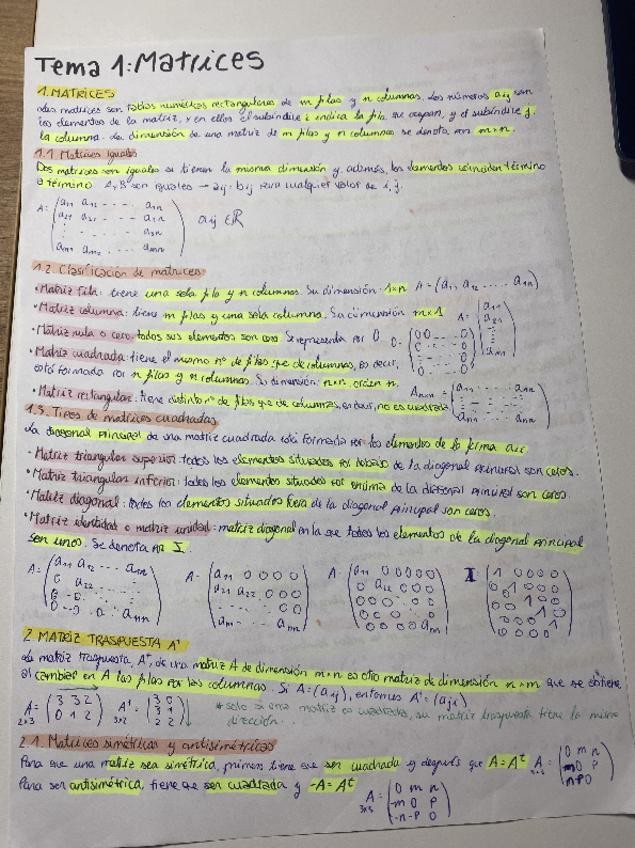 Tema 1: Matrices
1. MATRICES
Las matrices son tablas numéricas rectangulares de m filas y n columnas. Los números aij son
los elementos de la matriz, y en ellos el subíndice i indica la fila que ocupan, y el subíndice j,
la columna. La dimensión de una matriz de m filas y n columnas se denota con m×n.
1.1 Matrices iguales
Dos matrices son iguales si tienen la misma dimensión y, además, los elementos coinciden término
a término. A y B son iguales → aij = bij para cualquier valor de i, j.
A = (a11 a12 ... a1n
a21 a21 ... a2n
am1 am2 ... amn) aij ∈ ℝ
1.2. Clasificación de matrices
• Matriz fila: tiene una sola fila y n columnas. Su dimensión: 1×n A = (a11 a12 .... a1n)
• Matriz columna: tiene m filas y una sola columna. Su dimensión m×1 A = (a11 a21 ⋮ am1)
• Matriz nula o cero: todos sus elementos son cero. Se representa por 0.
• Matriz cuadrada: tiene el mismo nº de filas que de columnas, es decir,
está formada por n filas y n columnas. Su dimensión: n×n, orden n.
• Matriz rectangular: tiene distinto nº de filas que de columnas, es decir, no es cuadrada
1.3. Tipos de matrices cuadradas
La diagonal principal de una matriz cuadrada está formada por los elementos de la forma aii.
• Matriz triangular superior: todos los elementos situados por debajo de la diagonal principal son ceros.
• Matriz triangular inferior: todos los elementos situados por encima de la diagonal principal son ceros.
• Matriz diagonal: todos los elementos situados fuera de la diagonal principal son ceros.
• Matriz identidad o matriz unidad: matriz diagonal en la que todos los elementos de la diagonal principal
son unos. Se denota por I.
2 MATRIZ TRASPUESTA Aᵗ
La matriz traspuesta, Aᵗ, de una matriz A de dimensión m×n es otra matriz de dimensión n×m que se obtiene
al cambiar en A las filas por las columnas. Si A = (aij), entonces Aᵗ = (aji)
A 2×3 = (3 3 2
0 1 2) Aᵗ 3×2 = (3 0
3 1
2 2) * solo si una matriz es cuadrada, su matriz traspuesta tiene la misma
dirección.
2.1. Matrices simétricas y antisimétricas
Para que una matriz sea simétrica, primero tiene que ser cuadrada y después que A = Aᵗ A 3×3 = (0 m n
m 0 p
n p 0)
Para ser antisimétrica, tiene que ser cuadrada y -A = Aᵗ A 3×3 = (0 m n
-m 0 p
-n -p 0)